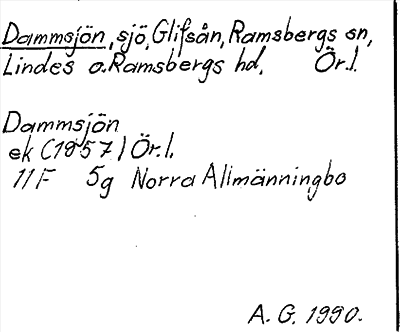 Dammsjön, sjö, Glifsån, Ramsbergs sn,
Lindes o. Ramsbergs hd, Ör.l.
Dammsjön
ek (1957) Ör.l.
11F 5g Norra Allmänningbo
A. G. 1990.